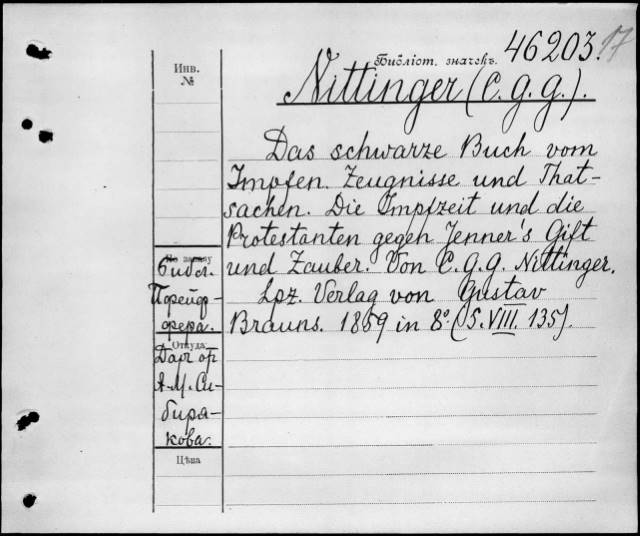 Библіот. значекъ. 46203.
17
Инв.
№
Nittinger (C. G. G.).
Das schwarze Buch vom
Impfen. Zeugnisse und That-
sachen. Die Impfzeit und die
Protestanten gegen Jenner's Gift
und Zauber. Von C. G. G. Nittinger.
Lpz. Verlag von Gustav
Brauns. 1869 in 8º. (S. VIII. 135).
По заказу
Библ.
Порейф-
фера.
Откуда
Даръ от
А. М. Си-
биря-
кова.
Цѣна